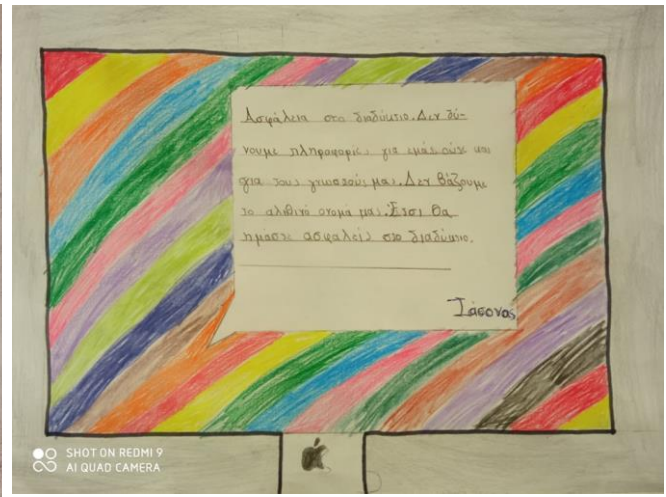 Ασφάλεια στο διαδύκτιο. Δεν δύ-
νουμε πληροφορίες για εμάς ούτε και
για τους γνωστούς μας. Δεν βάζουμε
το αληθινό όνομά μας. Έτσι θα
ημαστε ασφαλείς στο διαδύκτιο.
Ιάσονας
SHOT ON REDMI 9
AI QUAD CAMERA